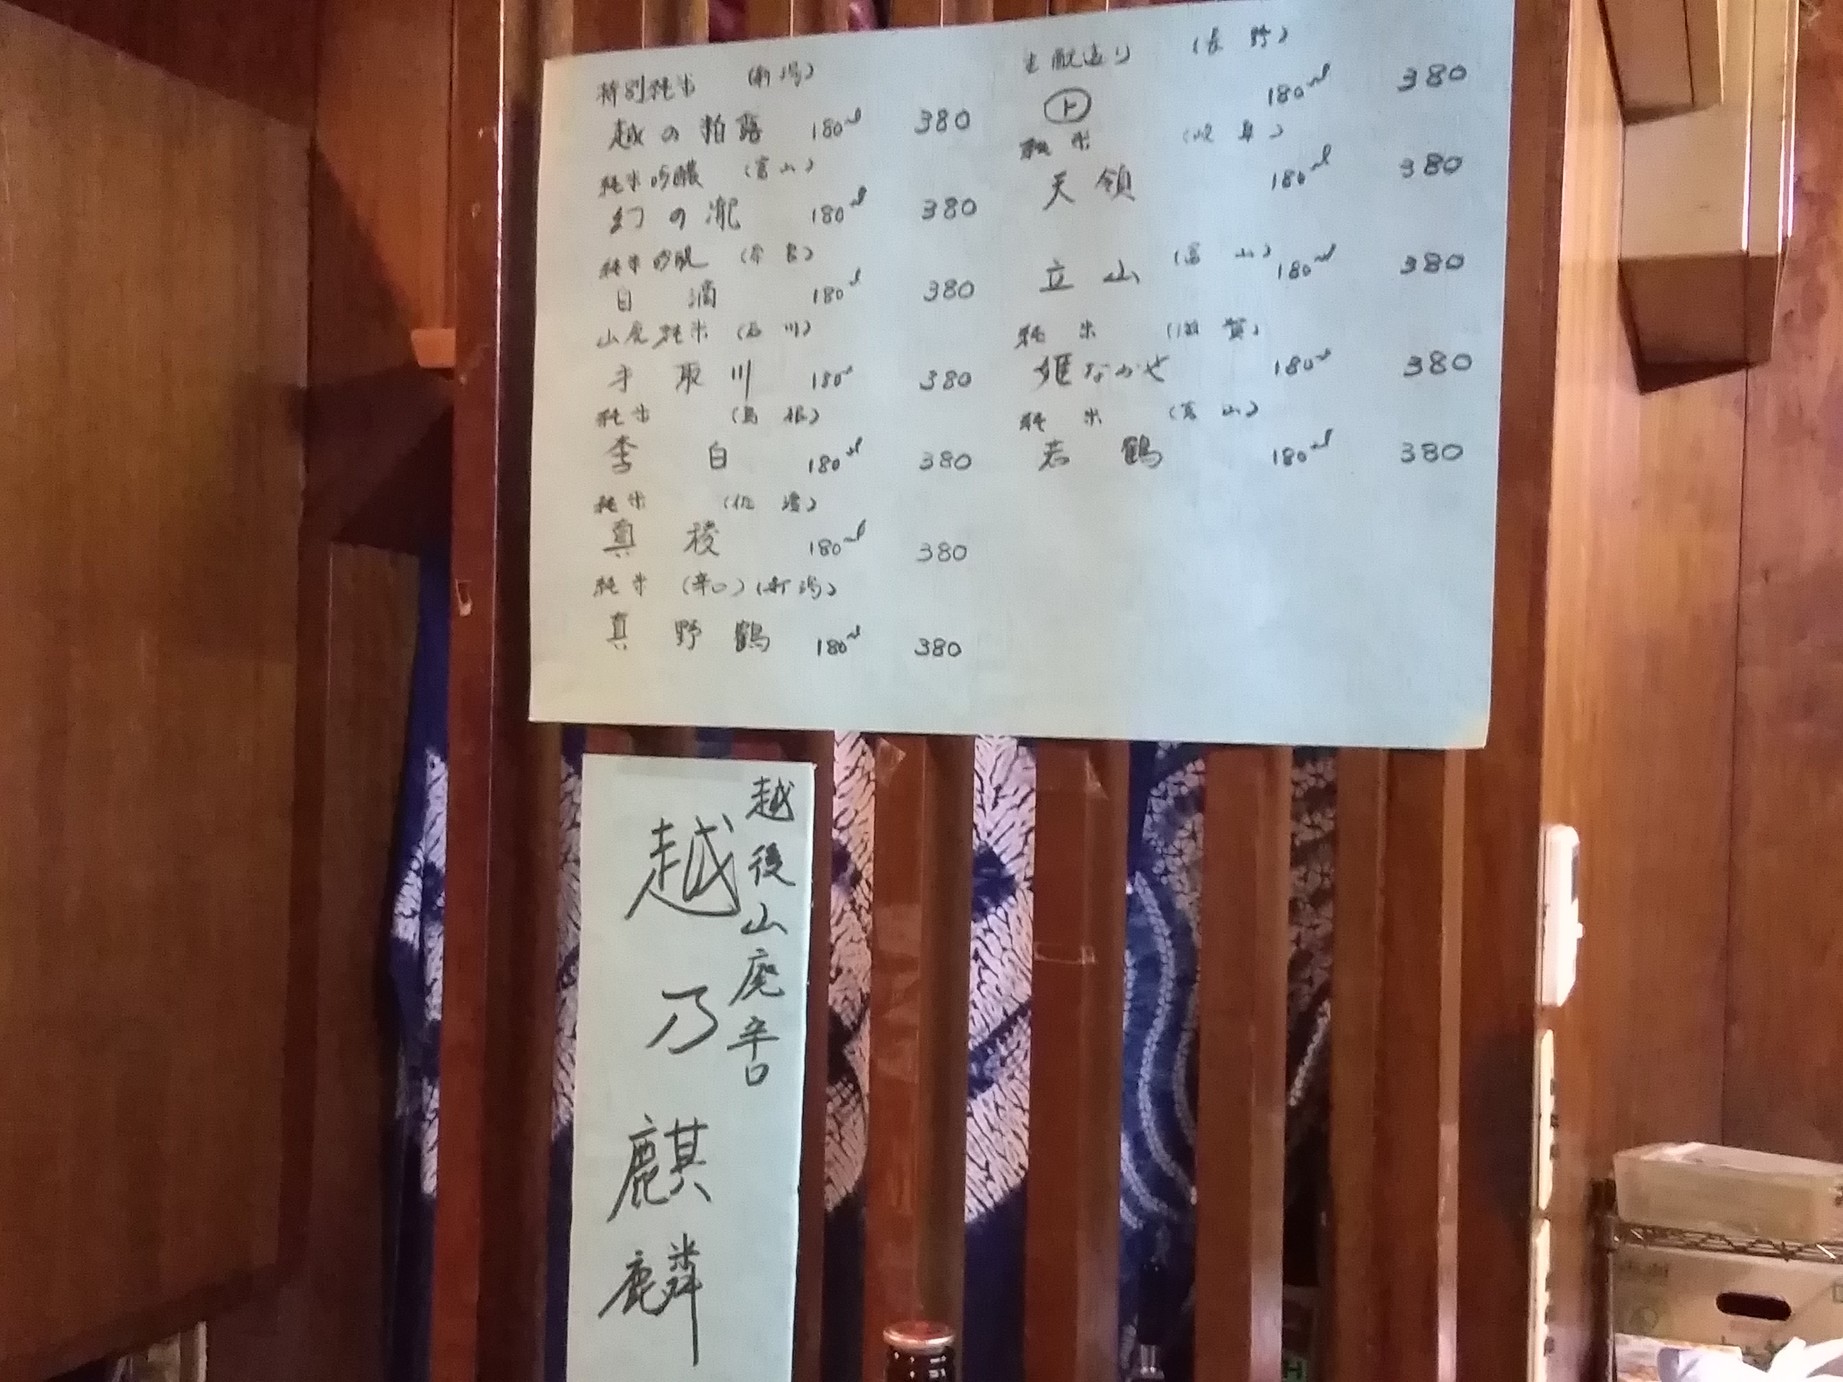 特別純米 (新潟)
越の 180ml 380
純米吟醸 (富山)
幻の瀧 180ml 380
純米吟醸
180ml 380
山廃純米 (石川)
手取川 180ml 380
純米 (島根)
李白 180ml 380
純米 (佐渡)
真稜 180ml 380
純米 (辛口) (新潟)
真野鶴 180ml 380
生酛造り (長野)
180ml 380
純米 (岐阜)
天領 180ml 380
立山 (富山) 180ml 380
純米 (滋賀)
180ml 380
純米 (富山)
若鶴 180ml 380
越後山廃辛口
越乃麒麟